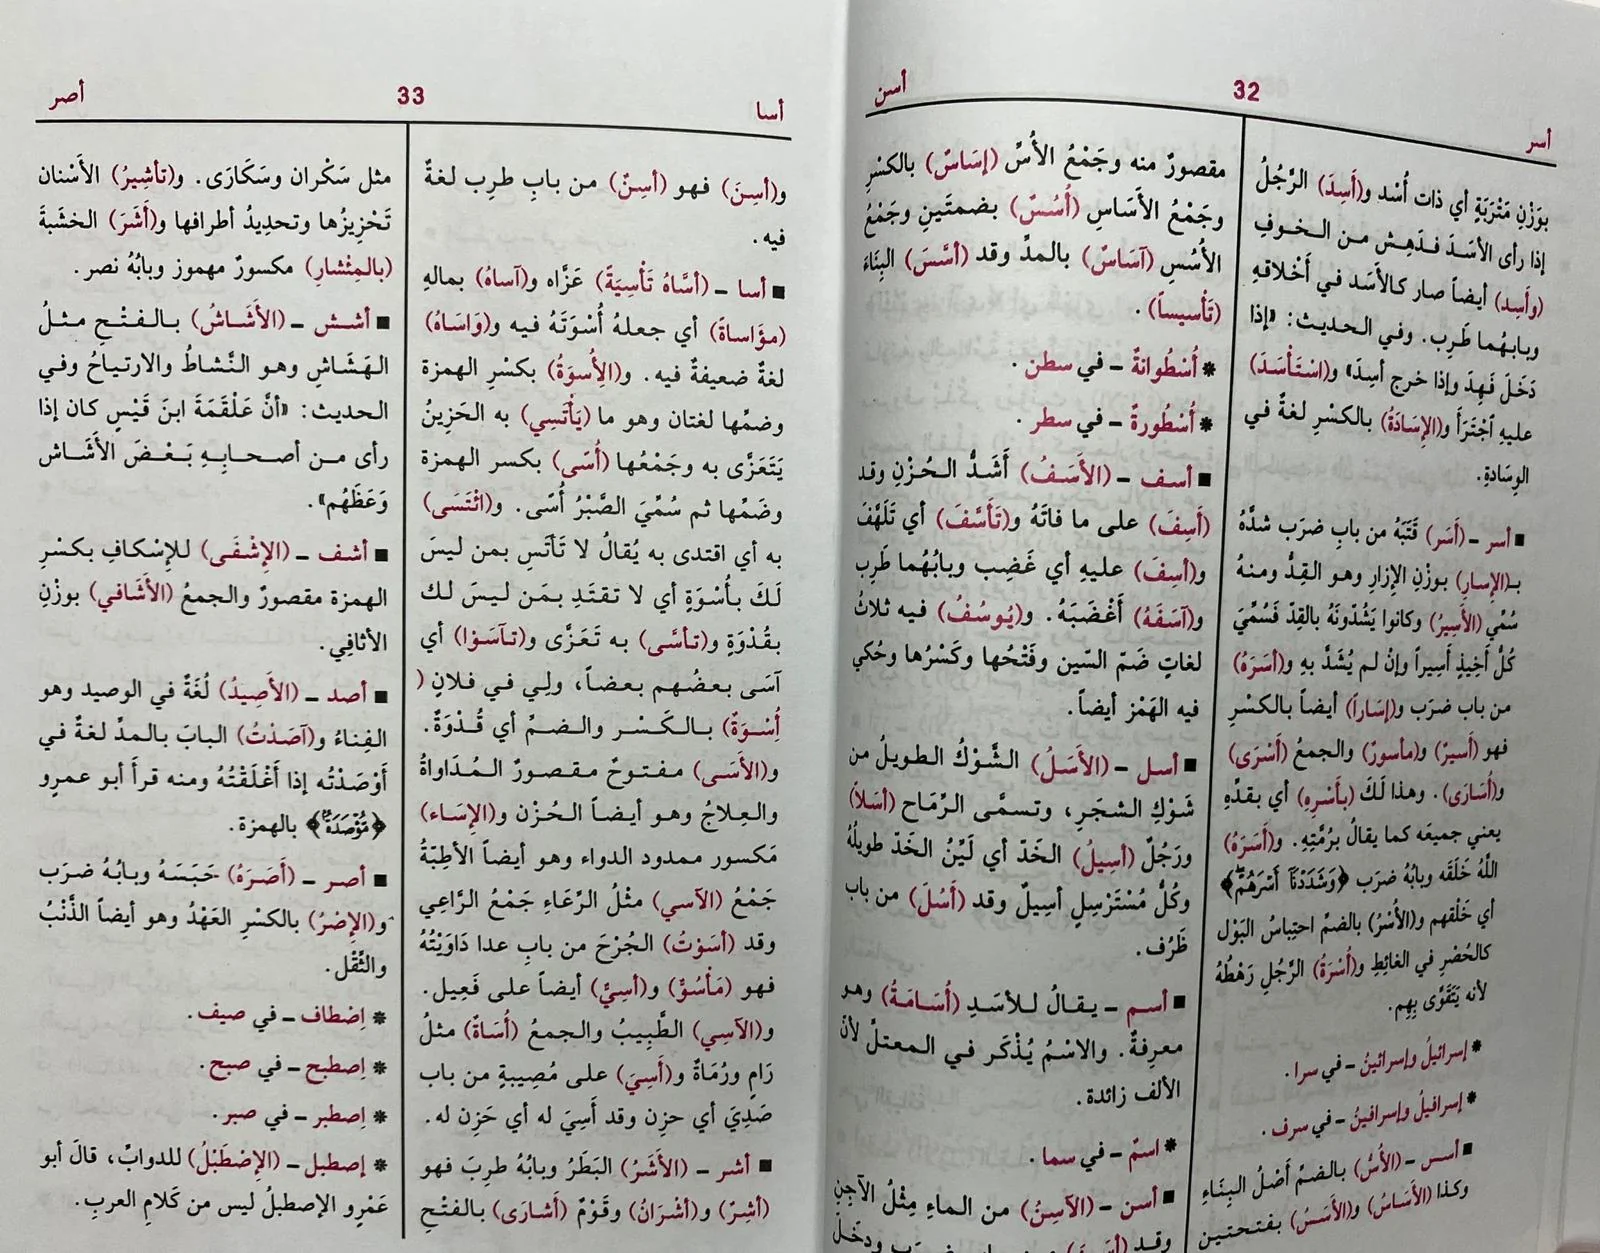 أسر
32
أسن
بوَزْنِ مَتْرَبَةٍ أي ذات أُسْد و(أَسِدَ) الرَّجُلُ
إذا رأى الأسَدَ فدَهِش من الخوفِ
و(أَسِد) أيضاً صار كالأسَد في أَخْلاقهِ
وبابهُما طَرِب. وفي الحديث: «إذا
دَخَلَ فَهِدَ وإذا خرج أسِدَ» و(اسْتَأْسَدَ)
عليهِ اجْتَرَأَ و(الإِسَادَةُ) بالكسْرِ لغةٌ في
الوِسَادةِ.
■ أسر – (أَسَر) قَتَبَهُ من بابِ ضرَب شدَّهُ
بـ(الإِسارِ) بوزْنِ الإزارِ وهو القِدُّ ومنهُ
سُمِّي (الأَسِيرُ) وكانوا يَشُدّونَهُ بالقِدّ فسُمِّيَ
كُلُّ أخِيذٍ أَسِيراً وإنْ لم يُشَدَّ بهِ و(أسَرَهُ)
من باب ضرَب و(إساراً) أيضاً بالكسْرِ
فهو (أَسيرٌ) و(مأسورٌ) والجمعُ (أَسْرَى)
و(أُسَارَى). وهذا لَكَ (بأَسْرِهِ) أي بقدِّهِ
يعني جميعَه كما يقالُ برُمَّتِهِ. و(أَسَرَهُ)
اللَّهُ خَلَقَه وبابُهُ ضرَب ﴿وَشَدَدْنَآ أَسْرَهُمْ﴾
أي خَلْقهم و(الأُسْرُ) بالضمّ احتِباسُ البَوْل
كالحُصْرِ في الغائِطِ و(أُسْرَةُ) الرَّجُلِ رَهْطُهُ
لأنه يَتَقَوَّى بِهِم.
* إسرائيلُ وإسرائينُ – في سرا.
* إسرافيلُ وإسرافينُ – في سرف.
■ أسس – (الأُسُّ) بالضمِّ أصْلُ البِنَاءِ
وكذا (الأَسَاسُ) و(الأَسَسُ) بفتحتين
مقصورٌ منه وجَمْعُ الأُسِّ (إِسَاسٌ) بالكسْرِ
وجَمْعُ الأَسَاسِ (أُسُسٌ) بضمتَينِ وجَمْعُ
الأُسُسِ (آسَاسٌ) بالمدّ وقد (أَسَّسَ) البِنَاءَ
(تَأْسِيساً).
* أُسْطُوانةٌ – في سطن.
* أُسْطُورةٌ – في سطر.
■ أسف – (الأَسَفُ) أَشَدُّ الحُزْنِ وقد
(أَسِفَ) على ما فاتَهُ و(تَأَسَّفَ) أي تَلَهَّفَ
و(أَسِفَ) عليهِ أي غَضِب وبابُهُما طَرِب
و(آسَفَهُ) أَغْضَبَهُ. و(يُوسُفُ) فيه ثلاثُ
لغاتٍ ضَمّ السّين وفَتْحُها وكَسْرُها وحُكي
فيه الهَمْز أيضاً.
■ أسل – (الأَسَلُ) الشَّوْكُ الطويلُ من
شَوْكِ الشجَرِ، وتسمَّى الرِّمَاح (أسَلاً)
ورَجُلٌ (أَسِيلُ) الخَدّ أي لَيِّنُ الخَدّ طويلُهُ
وكُلُّ مُسْتَرْسِلٍ أسِيلٌ وقد (أَسُلَ) من باب
ظَرُف.
■ أسم – يقالُ للأسَدِ (أُسَامَةُ) وهو
معرِفةٌ. والاسْمُ يُذْكَر في المعتلّ لأنّ
الألف زائدة.
* اسمٌ – في سما.
■ أسن – (الآسِنُ) من الماءِ مِثْلُ الآجِنِ
أسا
33
أصر
و(أسِنَ) فهو (أسِنٌ) من بابِ طرِب لغةٌ
فيه.
■ أسا – (أسَّاهُ تَأْسِيَةً) عَزَّاه و(آساهُ) بمالهِ
(مؤَاساةً) أي جعلهُ أُسْوَتَهُ فيه و(وَاسَاهُ)
لغةٌ ضعيفةٌ فيه. و(الأِسوَةُ) بكسْرِ الهمزة
وضمِّها لغتان وهو ما (يَأْتَسِي) به الحَزِينُ
يَتَعَزَّى به وجَمْعُها (أُسًى) بكسر الهمزة
وضَمِّها ثم سُمِّيَ الصَّبْرُ أُسًى. و(ائْتَسَى)
به أي اقتدى به يُقالُ لا تَأتَسِ بمن ليسَ
لَكَ بأُسْوَةٍ أي لا تقتَدِ بمَن ليسَ لك
بقُدْوَةٍ و(تأسَّى) به تَعَزَّى و(تآسَوْا) أي
آسَى بعضُهم بعضاً، ولِي في فلانٍ (
إُسْوَةٌ) بالكَسْر والضمِّ أي قُدْوَةٌ.
و(الأَسَى) مفتوحٌ مقصورٌ المُدَاواةُ
والعِلاجُ وهو أيضاً الحُزْن و(الإِسَاء)
مَكسور ممدود الدواء وهو أيضاً الأطِبَّةُ
جَمْعُ (الآسي) مثْلُ الرِّعَاءِ جَمْعُ الرَّاعِي
وقد (أسَوْتُ) الجُرْحَ من بابِ عدا دَاوَيْتُهُ
فهو (مَأْسُوٌّ) و(أَسِيٌّ) أيضاً على فَعِيل.
و(الآسِي) الطَّبِيبُ والجمعُ (أُسَاةٌ) مثلُ
رَامٍ ورُمَاةٌ و(أَسِيَ) على مُصِيبةٍ من باب
صَدِيَ أي حزِن وقد أَسِيَ له أي حَزِن له.
■ أشر – (الأَشَرُ) البَطَرُ وبابُهُ طرِبَ فهو
(أَشِرٌ) و(أَشْرَانُ) وقَوْمٌ (أَشارَى) بالفتْحِ
مثل سَكْران وسَكَارَى. و(تأشِيرُ) الأَسْنان
تَحْزِيزُها وتحدِيدُ أطرافها و(أَشَرَ) الخشَبةَ
(بالمِئْشارِ) مكسورٌ مهموز وبابُهُ نصر.
■ أشش – (الأَشَاشُ) بالفتْحِ مثلُ
الهَشَاشِ وهو النَّشاطُ والارتياحُ وفي
الحديث: «أنَّ عَلْقَمَةَ ابنَ قَيْسٍ كان إذا
رأى من أصحابِهِ بَعْضَ الأَشَاش
وَعَظَهُم».
■ أشف – (الإِشْفَى) للإسْكافِ بكسْرِ
الهمزة مقصورٌ والجمعُ (الأَشَافي) بوزْنِ
الأثافِي.
■ أصد – (الأَصِيدُ) لُغَةٌ في الوصيد وهو
الفِناءُ و(آصَدْتُ) البابَ بالمدّ لغةٌ في
أَوْصَدْتُه إذا أَغْلَقْتُهُ ومنه قرأ أبو عمرٍو
﴿مُّؤْصَدَةٌ﴾ بالهمزة.
■ أصر – (أَصَرَهُ) حَبَسَهُ وبابُهُ ضرَب
و(الإِصْرُ) بالكسْرِ العَهْدُ وهو أيضاً الذَّنْبُ
والثِّقْل.
* اِصْطاف – في صيف.
* اِصطبح – في صبح.
* اِصطبر – في صبر.
* إصطبل – (الإصْطَبْلُ) للدوابِّ، قالَ أبو
عَمْرٍو الإصطبلُ ليس من كَلامِ العربِ.